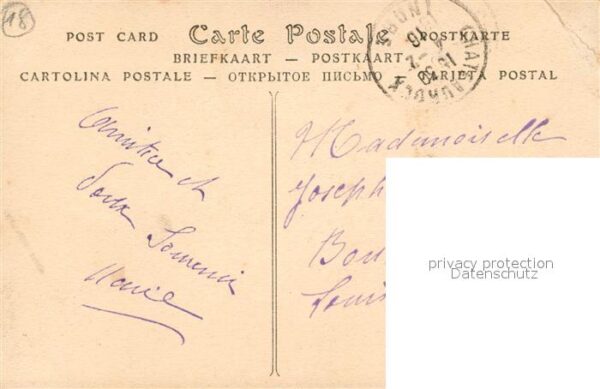 18
POST CARD Carte Postale POSTKARTE
BRIEFKAART — POSTKAART
CARTOLINA POSTALE — ОТКРЫТОЕ ПИСЬМО — TARJETA POSTAL
Amitié et
Doux Souvenir
Marie
Mademoiselle
Joseph
Bou
Louis
privacy protection
Datenschutz